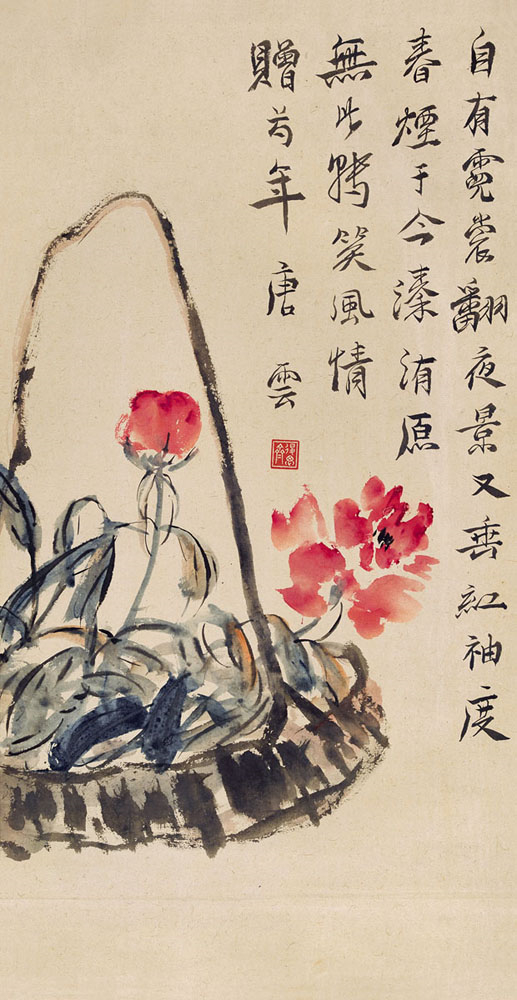 自有霓裳翻夜景又垂紅袖度
春煙于今溱洧原
無此騁笑風情
贈芍年 唐雲